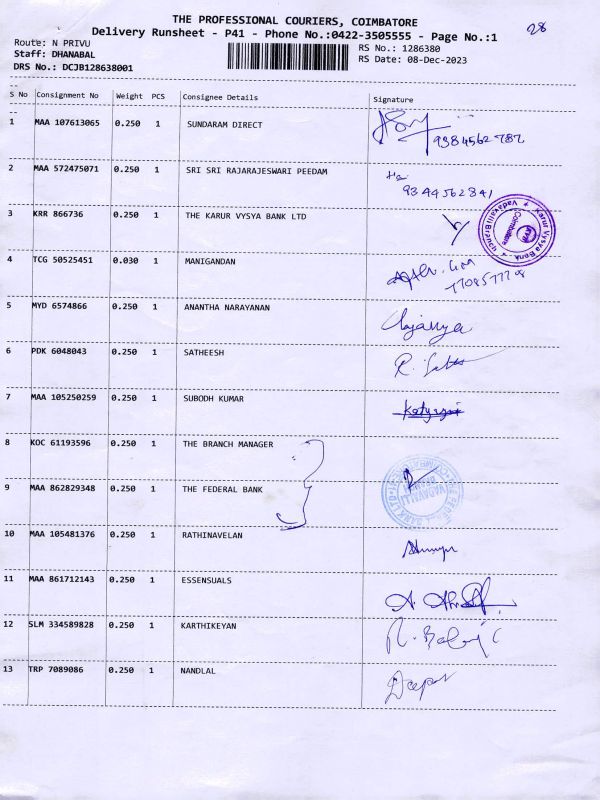 THE PROFESSIONAL COURIERS, COIMBATORE
Delivery Runsheet - P41 - Phone No.:0422-3505555 - Page No.:1
28
Route: N PRIVU
RS No.: 1286380
Staff: DHANABAL
RS Date: 08-Dec-2023
DRS No.: DCJB128638001
S No Consignment No Weight PCS Consignee Details Signature
1 MAA 107613065 0.250 1 SUNDARAM DIRECT
9384562787
2 MAA 572475071 0.250 1 SRI SRI RAJARAJESWARI PEEDAM
9344562841
3 KRR 866736 0.250 1 THE KARUR VYSYA BANK LTD
Karur Vysya Bank
Vadavalli Branch
Coimbatore
4 TCG 50525451 0.030 1 MANIGANDAN
5 MYD 6574866 0.250 1 ANANTHA NARAYANAN
6 PDK 6048043 0.250 1 SATHEESH
7 MAA 105250259 0.250 1 SUBODH KUMAR
8 KOC 61193596 0.250 1 THE BRANCH MANAGER
9 MAA 862829348 0.250 1 THE FEDERAL BANK
VADAVALLI
10 MAA 105481376 0.250 1 RATHINAVELAN
11 MAA 861712143 0.250 1 ESSENSUALS
12 SLM 334589828 0.250 1 KARTHIKEYAN
13 TRP 7089086 0.250 1 NANDLAL